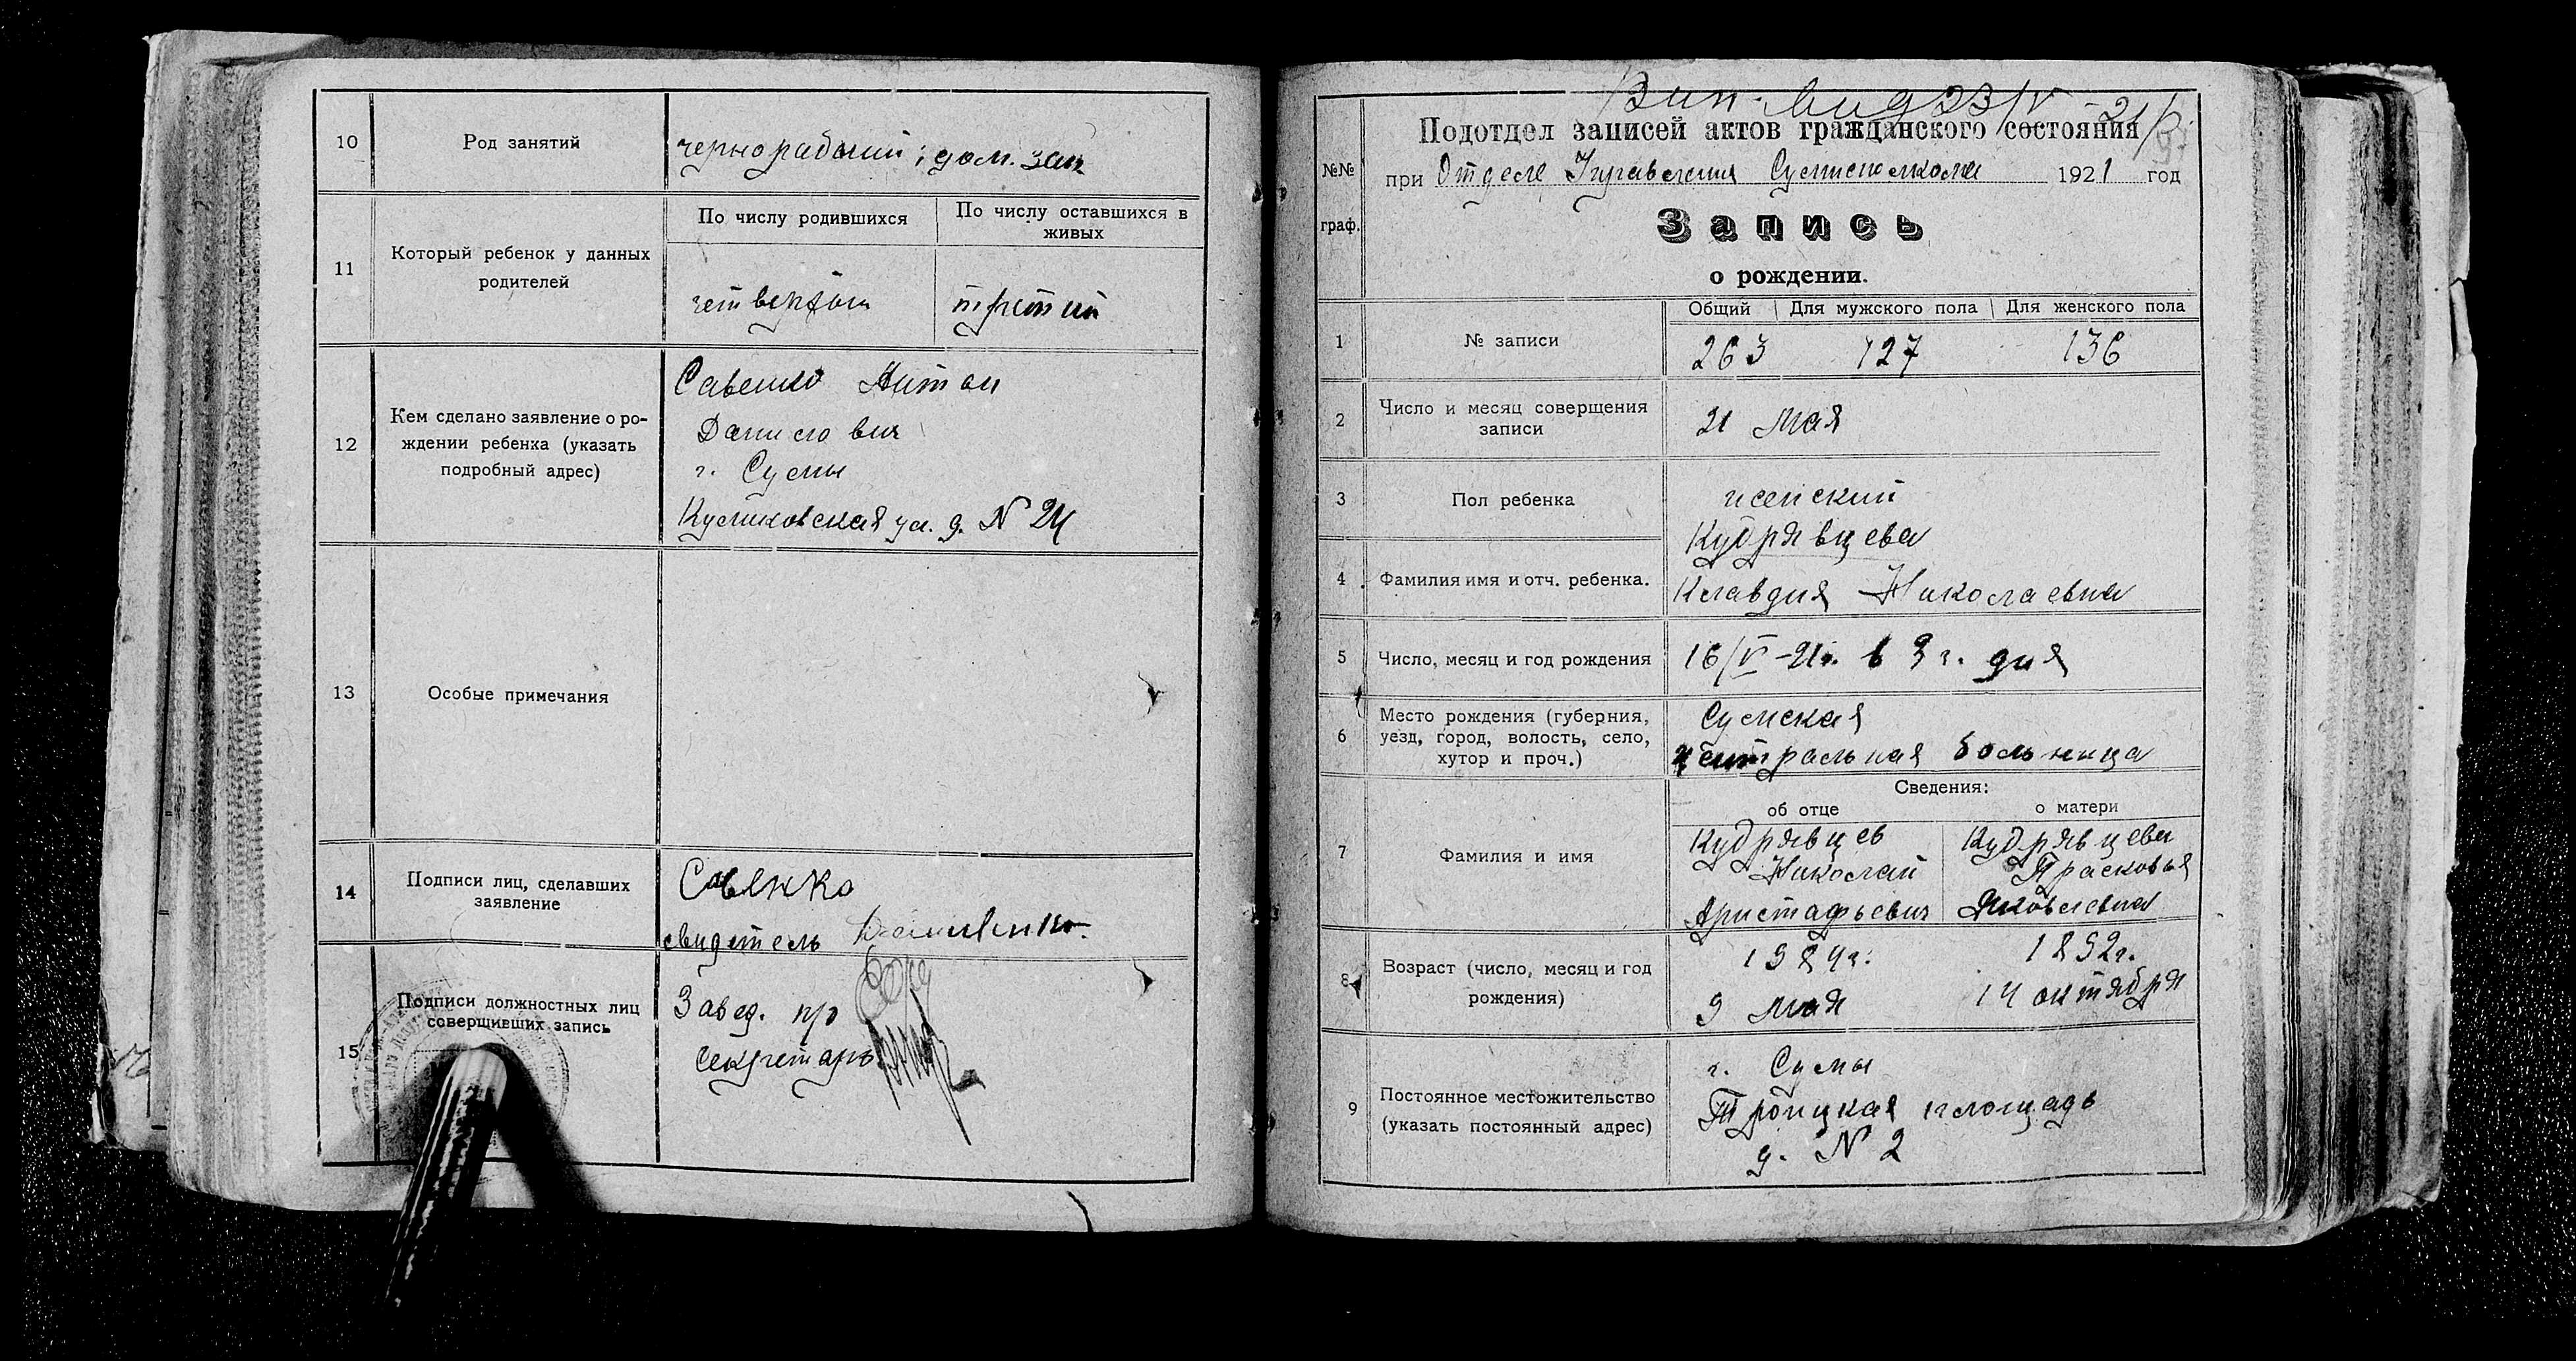 10
Род занятий
чернорабочий; дом. зан.
11
Который ребенок у данных
родителей
По числу родившихся
По числу оставшихся в
живых
четвертый
третий
12
Кем сделано заявление о ро-
ждении ребенка (указать
подробный адрес)
Савенко Антон
Данилович
г. Сумы
Куликовская ул. д. N 24
13
Особые примечания
14
Подписи лиц, сделавших
заявление
Савенко
свидетель
15
Подписи должностных лиц
совершивших запись
Завед. п/о
Секретарь
23/V-21
Подотдел записей актов гражданского состояния
№№
граф.
при Отделе Управления Сумисполкома 1921 год
Запись
о рождении.
1
№ записи
Общий
Для мужского пола
Для женского пола
263
127
136
2
Число и месяц совершения
записи
21 мая
3
Пол ребенка
женский
4
Фамилия имя и отч. ребенка.
Кудрявцева
Клавдия Николаевна
5
Число, месяц и год рождения
16/V-21г. в 3 г. дня
6
Место рождения (губерния,
уезд, город, волость, село,
хутор и проч.)
Сумская
центральная больница
Сведения:
об отце
о матери
7
Фамилия и имя
Кудрявцев
Николай
Аристафьевич
Кудрявцева
Прасковья
Яковлевна
8
Возраст (число, месяц и год
рождения)
9 мая
1892г.
14 октября
9
Постоянное местожительство
(указать постоянный адрес)
г. Сумы
Троицкая площадь
д. N 2